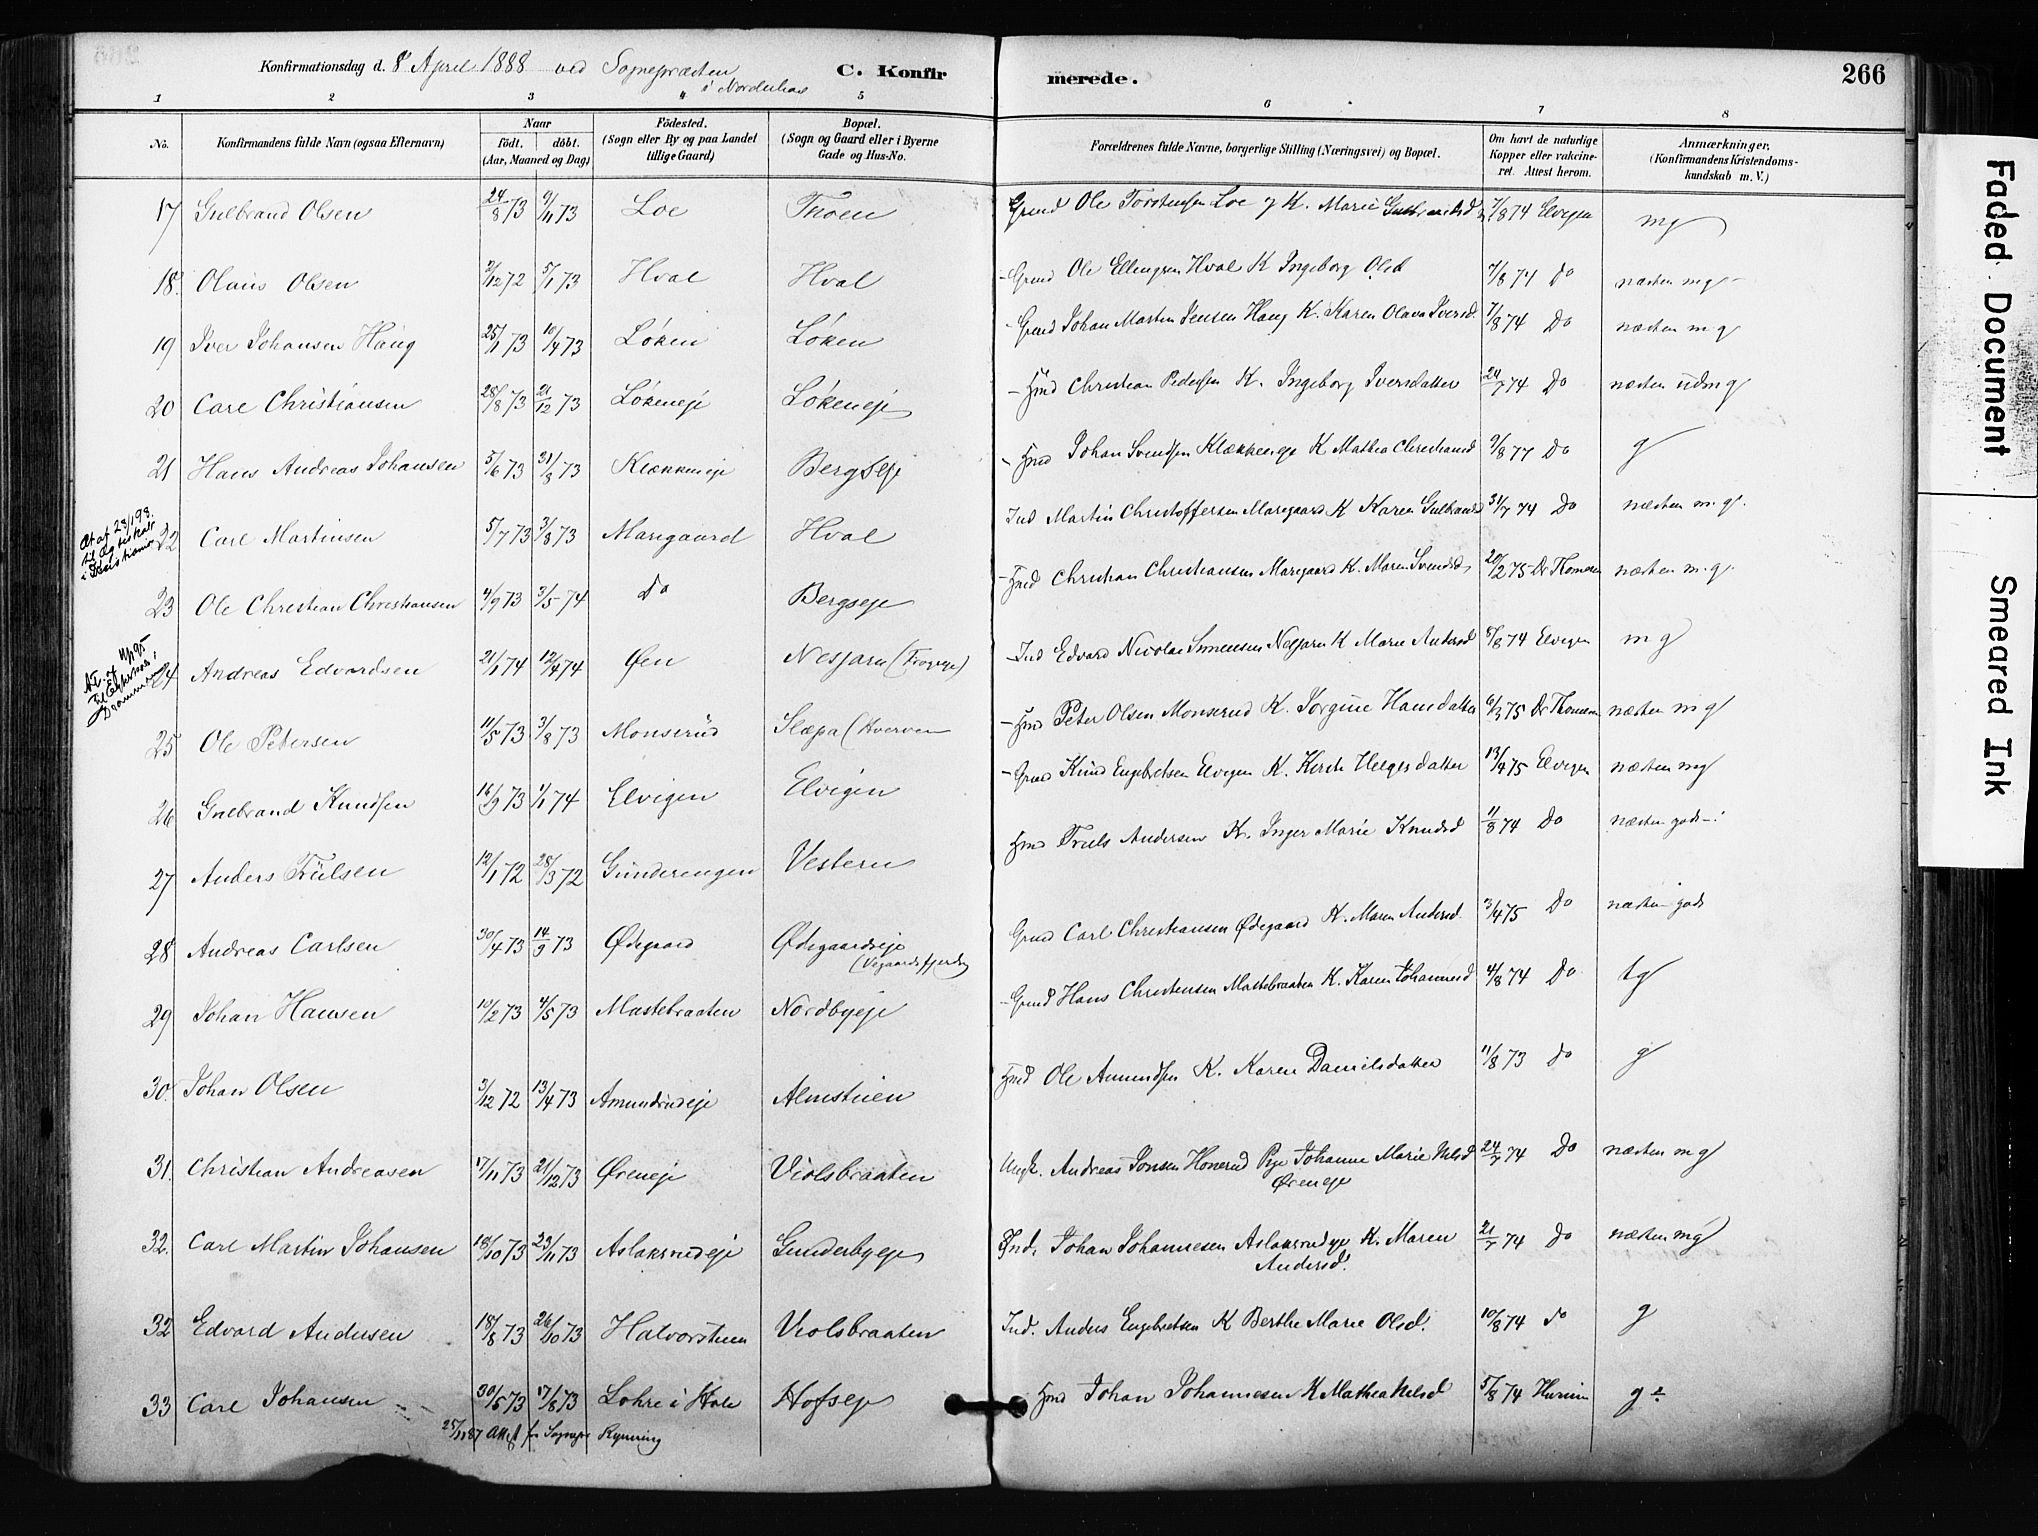 Konfirmationsdag d. 8 April 1888 ved Sognepræsten i Norderhov C. Konfirmerede. 266
1 2 3 4 5 6 7 8
No. Konfirmandens fulde Navn (ogsaa Efternavn) Naar födt. döbt. (Aar, Maaned og Dag) Födested. (Sogn eller By og paa Landet tillige Gaard) Bopæl. (Sogn og Gaard eller i Byerne Gade og Hus-No. Forældrenes fulde Navne, borgerlige Stilling (Næringsvei) og Bopæl. Om havt de naturlige Kopper eller vakcineret. Attest herom. Anmærkninger. (Konfirmandens Kristendomskundskab m. V.)
17 Gulbrand Olsen 24/8 73 9/11 73 Loe Thoen Grmd Ole Torstensen Loe & K. Marie Gulbrandsd 7/8 74 Elvigen mg
18. Olaus Olsen 2/12 72 5/1 73 Hval Hval Grmd Ole Ellingsen Hval K Ingeborg Olsd 7/8 74 Do næsten mg
19 Iver Johansen Haug 25/1 73 10/4 73 Löken Löken Grmd Johan Martin Jensen Haug K. Karen Olava Iversd. 7/8 74 Do næsten m g
20 Carl Christiansen 28/8 73 21/12 73 Lökeneje Lökeneje Hmd Christian Pedersen K. Ingeborg Iversdatter 24/7 74 Do næsten udm g
21 Hans Andreas Johansen 5/6 73 31/8 73 Klækkeneje Bergseje Hmd Johan Svendsen Klækkeneje K Mathea Christiansd 9/8 77 Do g
22 Carl Martinsen 5/7 73 3/8 73 Marigaard Hval Ind Martin Christoffersen Marigaard K Karen Gulbrandsd 31/7 74 Do næsten m. g.
23 Ole Christian Christiansen 4/9 73 3/5 74 Do Bergseje Hmd Christian Christiansen Marigaard K. Maren Svendsd 20/2 75 Dr Thomesen næsten m. g.
24 Andreas Edvardsen 21/1 74 12/4 74 Øen Nesjarn Ind Edvard Nicolai Simensen Nesjarn K Marie Andersd 5/8 74 Elvigen m g
25 Ole Petersen 11/5 73 3/8 73 Monserud Slæpa (Hverven Hmd Peter Olsen Monserud K. Jorgine Hansdatter 6/3 75 Dr Thomesen næsten m g
26 Gulbrand Knudsen 16/9 73 1/1 74 Elvigen Elvigen Grmd Knud Engebretsen Elvigen K. Kirsti Helgesdatter 13/4 75 Elvigen næsten mg
27 Anders Trulsen 12/1 72 28/3 72 Gunderengen Vestern Hmd Truls Andersen K. Inger Marie Knudsd 11/8 74 Do næsten godt
28 Andreas Carlsen 30/4 73 14/9 73 Ødegaard Ødegaardseje (Vegaardsfjerdg Grmd Carl Christiansen Ødegaard K. Maren Andersd 3/4 75 Do næsten godt
29 Johan Hansen 10/2 73 4/5 73 Mastebraaten Nordbyeje Grmd Hans Christensen Mastebraaten K. Karen Johannesd 4/8 74 Do tg
30. Johan Olsen 3/12 72 13/4 73 Amundrudeje Almstuen Hmd Ole Amundsen K. Karen Danielsdatter 11/8 73 do g
31. Christian Andreasen 17/11 73 21/12 73 Øreneje Violsbraaten Ungk. Andreas Jonsen Honerud Pge Johanne Marie Nilsd Øreneje 24/7 74 Do næsten m g
32. Carl Martin Johansen 18/10 73 23/11 73 Aslaksrudeje Gunderbyeje Ind. Johan Johannesen Aslaksrudeje K. Maren Andersd. 21/7 74 Do næsten mg
32 Edvard Andersen 18/8 73 26/10 73 Halvorstuen Violsbraaten Ind. Anders Engebretsen K Berthe Marie Olsd. 10/8 74 do g
33 Carl Johansen 30/5 73 17/8 73 Lohre i Hole Hofseje Hmd Johan Johannesen K Mathea Nilsd 5/8 74 g
25/11 87 Attest fr Sognepr Rynning
Faded Document
Smeared Ink